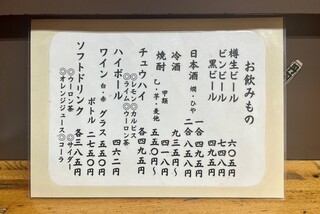 お飲みもの
樽生ビール 六〇五円
ビンビール 七四八円
黒ビール 七四八円
日本酒 燗・ひや 一合 四九五円
二合 八五八円
冷酒 九三五円〜
焼酎 甲類 四一八円
乙・芋・麦他 五五〇円〜
チュウハイ 各四九五円
◎レモン◎カルピス
◎ライム◎ウーロン茶
ハイボール 四六二円
ワイン 白・赤 グラス 五五〇円
ボトル 二七五〇円
ソフトドリンク 各三八五円
◎ウーロン茶 ◎サイダー
◎オレンジジュース◎コーラ